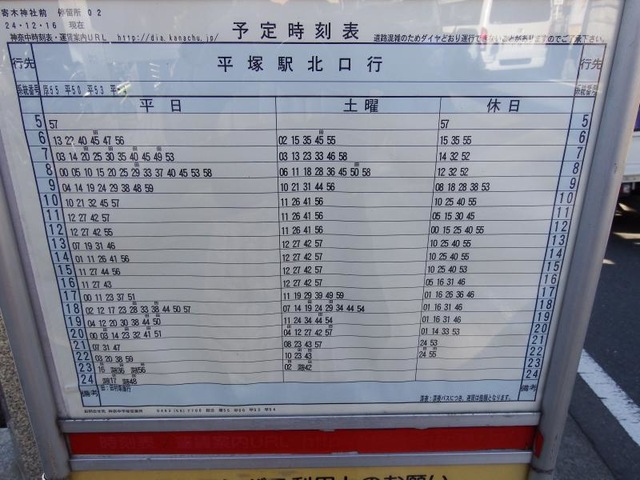 寄木神社前 停留所 02
24・12・16 現在
神奈中時刻表・運賃案内URL http://dia.kanachu.jp/
予定時刻表
道路混雑のためダイヤどおり運行できないことがありますのでご了承下さい。
行先 平塚駅北口行 行先
系統番号 平50 平53 系統番号
平日 土曜 休日
5 57 57 5
6 13 22 40 45 47 56 02 15 35 45 55 15 35 55 6
7 03 14 20 25 30 35 40 45 49 53 03 13 23 33 46 58 14 32 52 7
8 00 05 10 15 20 25 29 33 37 40 45 53 58 06 11 18 28 36 45 50 58 12 32 52 8
9 04 14 19 24 29 38 48 59 10 21 31 44 56 08 18 28 38 53 9
10 10 21 32 45 57 11 26 41 56 10 25 40 55 10
11 12 27 42 57 11 26 41 56 05 15 30 45 11
12 12 27 42 55 11 26 41 56 00 15 25 40 55 12
13 07 19 31 46 12 27 42 57 10 25 40 55 13
14 01 11 26 41 56 12 27 42 57 10 25 40 55 14
15 11 27 44 56 12 27 42 57 10 25 40 53 15
16 11 27 43 12 27 42 57 05 16 31 46 16
17 00 11 23 37 51 11 19 29 39 49 59 01 16 26 36 46 17
18 02 12 17 23 28 33 38 44 50 57 07 14 19 24 29 34 44 54 01 16 31 46 18
19 04 12 20 30 38 44 50 11 24 34 44 54 01 16 31 46 19
20 00 03 14 23 32 41 51 04 12 27 42 57 01 14 33 53 20
21 07 31 47 08 23 43 57 24 53 21
22 03 20 38 59 10 23 43 24 55 22
23 16 深36 深56 02 深42 23
24 深17 深48 24
備考 備考
深夜:深夜バスにつき、運賃は倍額となります。